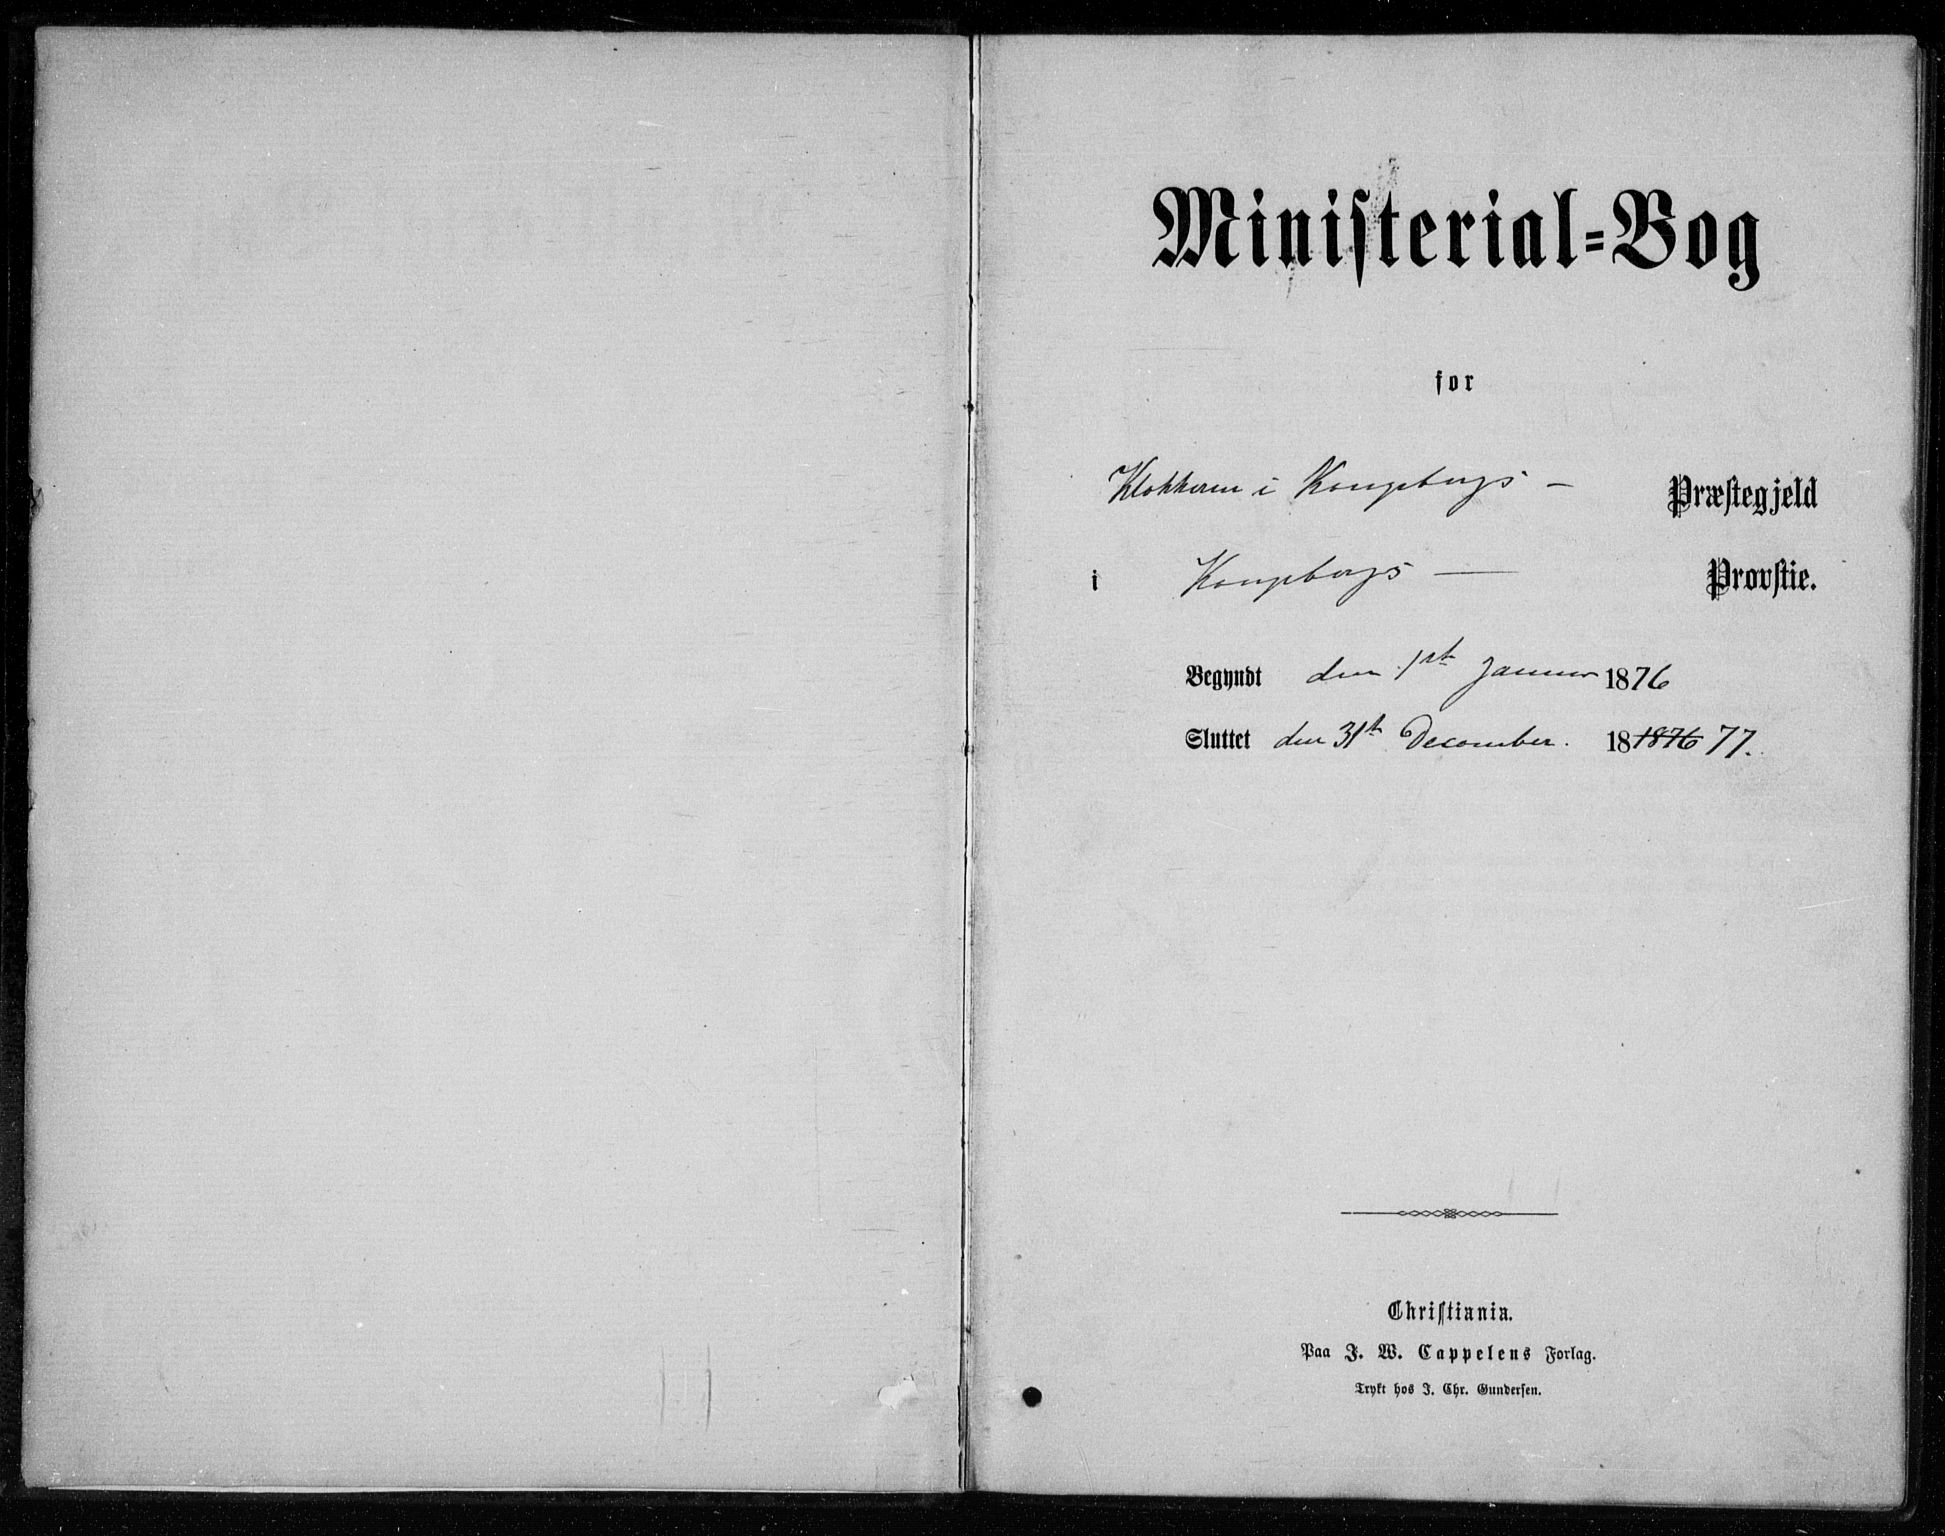 Ministerial=Bog
for
Klokkeren i Kongsbergs – Præstegjeld
i Kongsbergs — Provstie.
Begyndt den 1st Januar 1876
Sluttet den 31t December. 181876 77.
Christiania.
Paa J. W. Cappelens Forlag.
Trykt hos J. Chr. Gundersen.